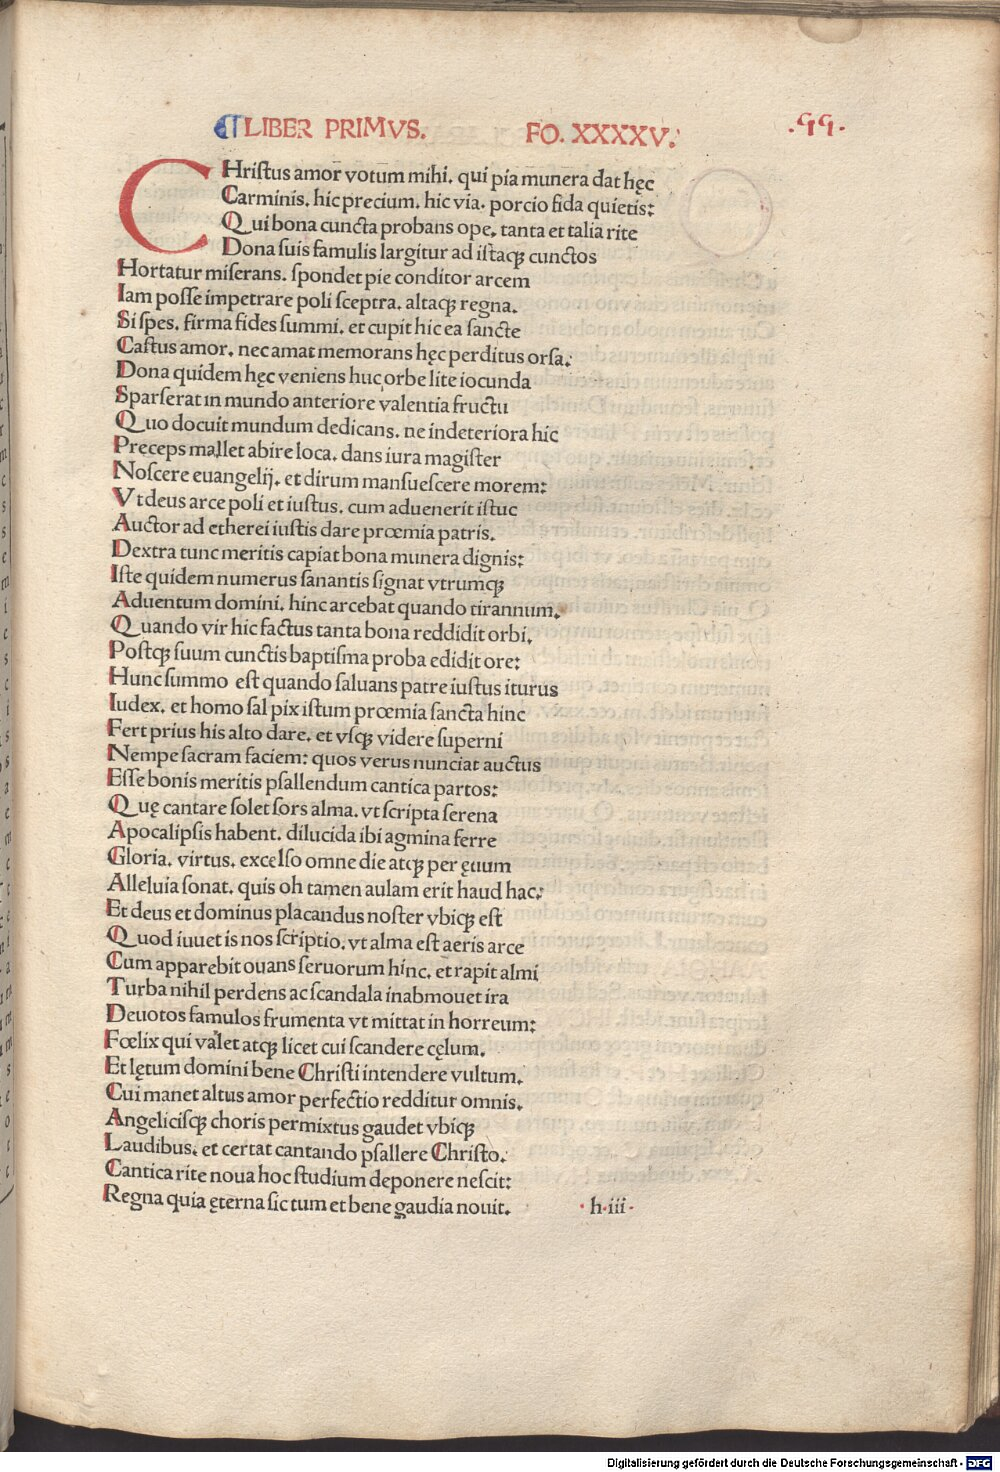 LIBER PRIMVS. FO. XXXXV.
CHriſtus amor votum mihi. qui pia munera dat hęc
Carminis. hic precium. hic via. porcio fida quietis:
Qui bona cuncta probans ope. tanta et talia rite
Dona ſuis famulis largitur ad iſtaqꝫ cunctos
Hortatur miſerans. ſpondet pie conditor arcem
Iam poſſe impetrare poli ſceptra. altaqꝫ regna.
Si ſpes. firma fides ſummi. et cupit hic ea ſancte
Caſtus amor. nec amat memorans hęc perditus orſa.
Dona quidem hęc veniens huc orbe lite iocunda
Sparſerat in mundo anteriore valentia fructu
Quo docuit mundum dedicans. ne indeteriora hic
Preceps mallet abire loca. dans iura magiſter
Noſcere euangelij. et dirum manſueſcere morem:
Vt deus arce poli et iuſtus. cum aduenerit iſtuc
Auctor ad etherei iuſtis dare prœmia patris.
Dextra tunc meritis capiat bona munera dignis:
Iſte quidem numerus ſanantis ſignat vtrumqꝫ
Aduentum domini. hinc arcebat quando tirannum.
Quando vir hic factus tanta bona reddidit orbi.
Poſtqꝫ ſuum cunctis baptiſma proba edidit ore:
Hunc ſummo eſt quando ſaluans patre iuſtus iturus
Iudex. et homo ſal pix iſtum prœmia ſancta hinc
Fert prius his alto dare. et vſqꝫ videre ſuperni
Nempe ſacram faciem: quos verus nunciat auctus
Eſſe bonis meritis pſallendum cantica partos:
Quę cantare ſolet ſors alma. vt ſcripta ſerena
Apocalipſis habent. dilucida ibi agmina ferre
Gloria. virtus. excelſo omne die atqꝫ per ęuum
Alleluia ſonat. quis oh tamen aulam erit haud hac:
Et deus et dominus placandus noſter vbiqꝫ eſt
Quod iuuet is nos ſcriptio. vt alma eſt aeris arce
Cum apparebit ouans ſeruorum hinc. et rapit almi
Turba nihil perdens ac ſcandala inabmouet ira
Deuotos famulos frumenta vt mittat in horreum:
Fœlix qui valet atqꝫ licet cui ſcandere cęlum.
Et lętum domini bene Chriſti intendere vultum.
Cui manet altus amor perfectio redditur omnis.
Angeliciſqꝫ choris permixtus gaudet vbiqꝫ
Laudibus. et certat cantando pſallere Chriſto.
Cantica rite noua hoc ſtudium deponere neſcit:
Regna quia ęterna ſic tum et bene gaudia nouit. h.iii.
Digitalisierung gefördert durch die Deutsche Forschungsgemeinschaft - DFG